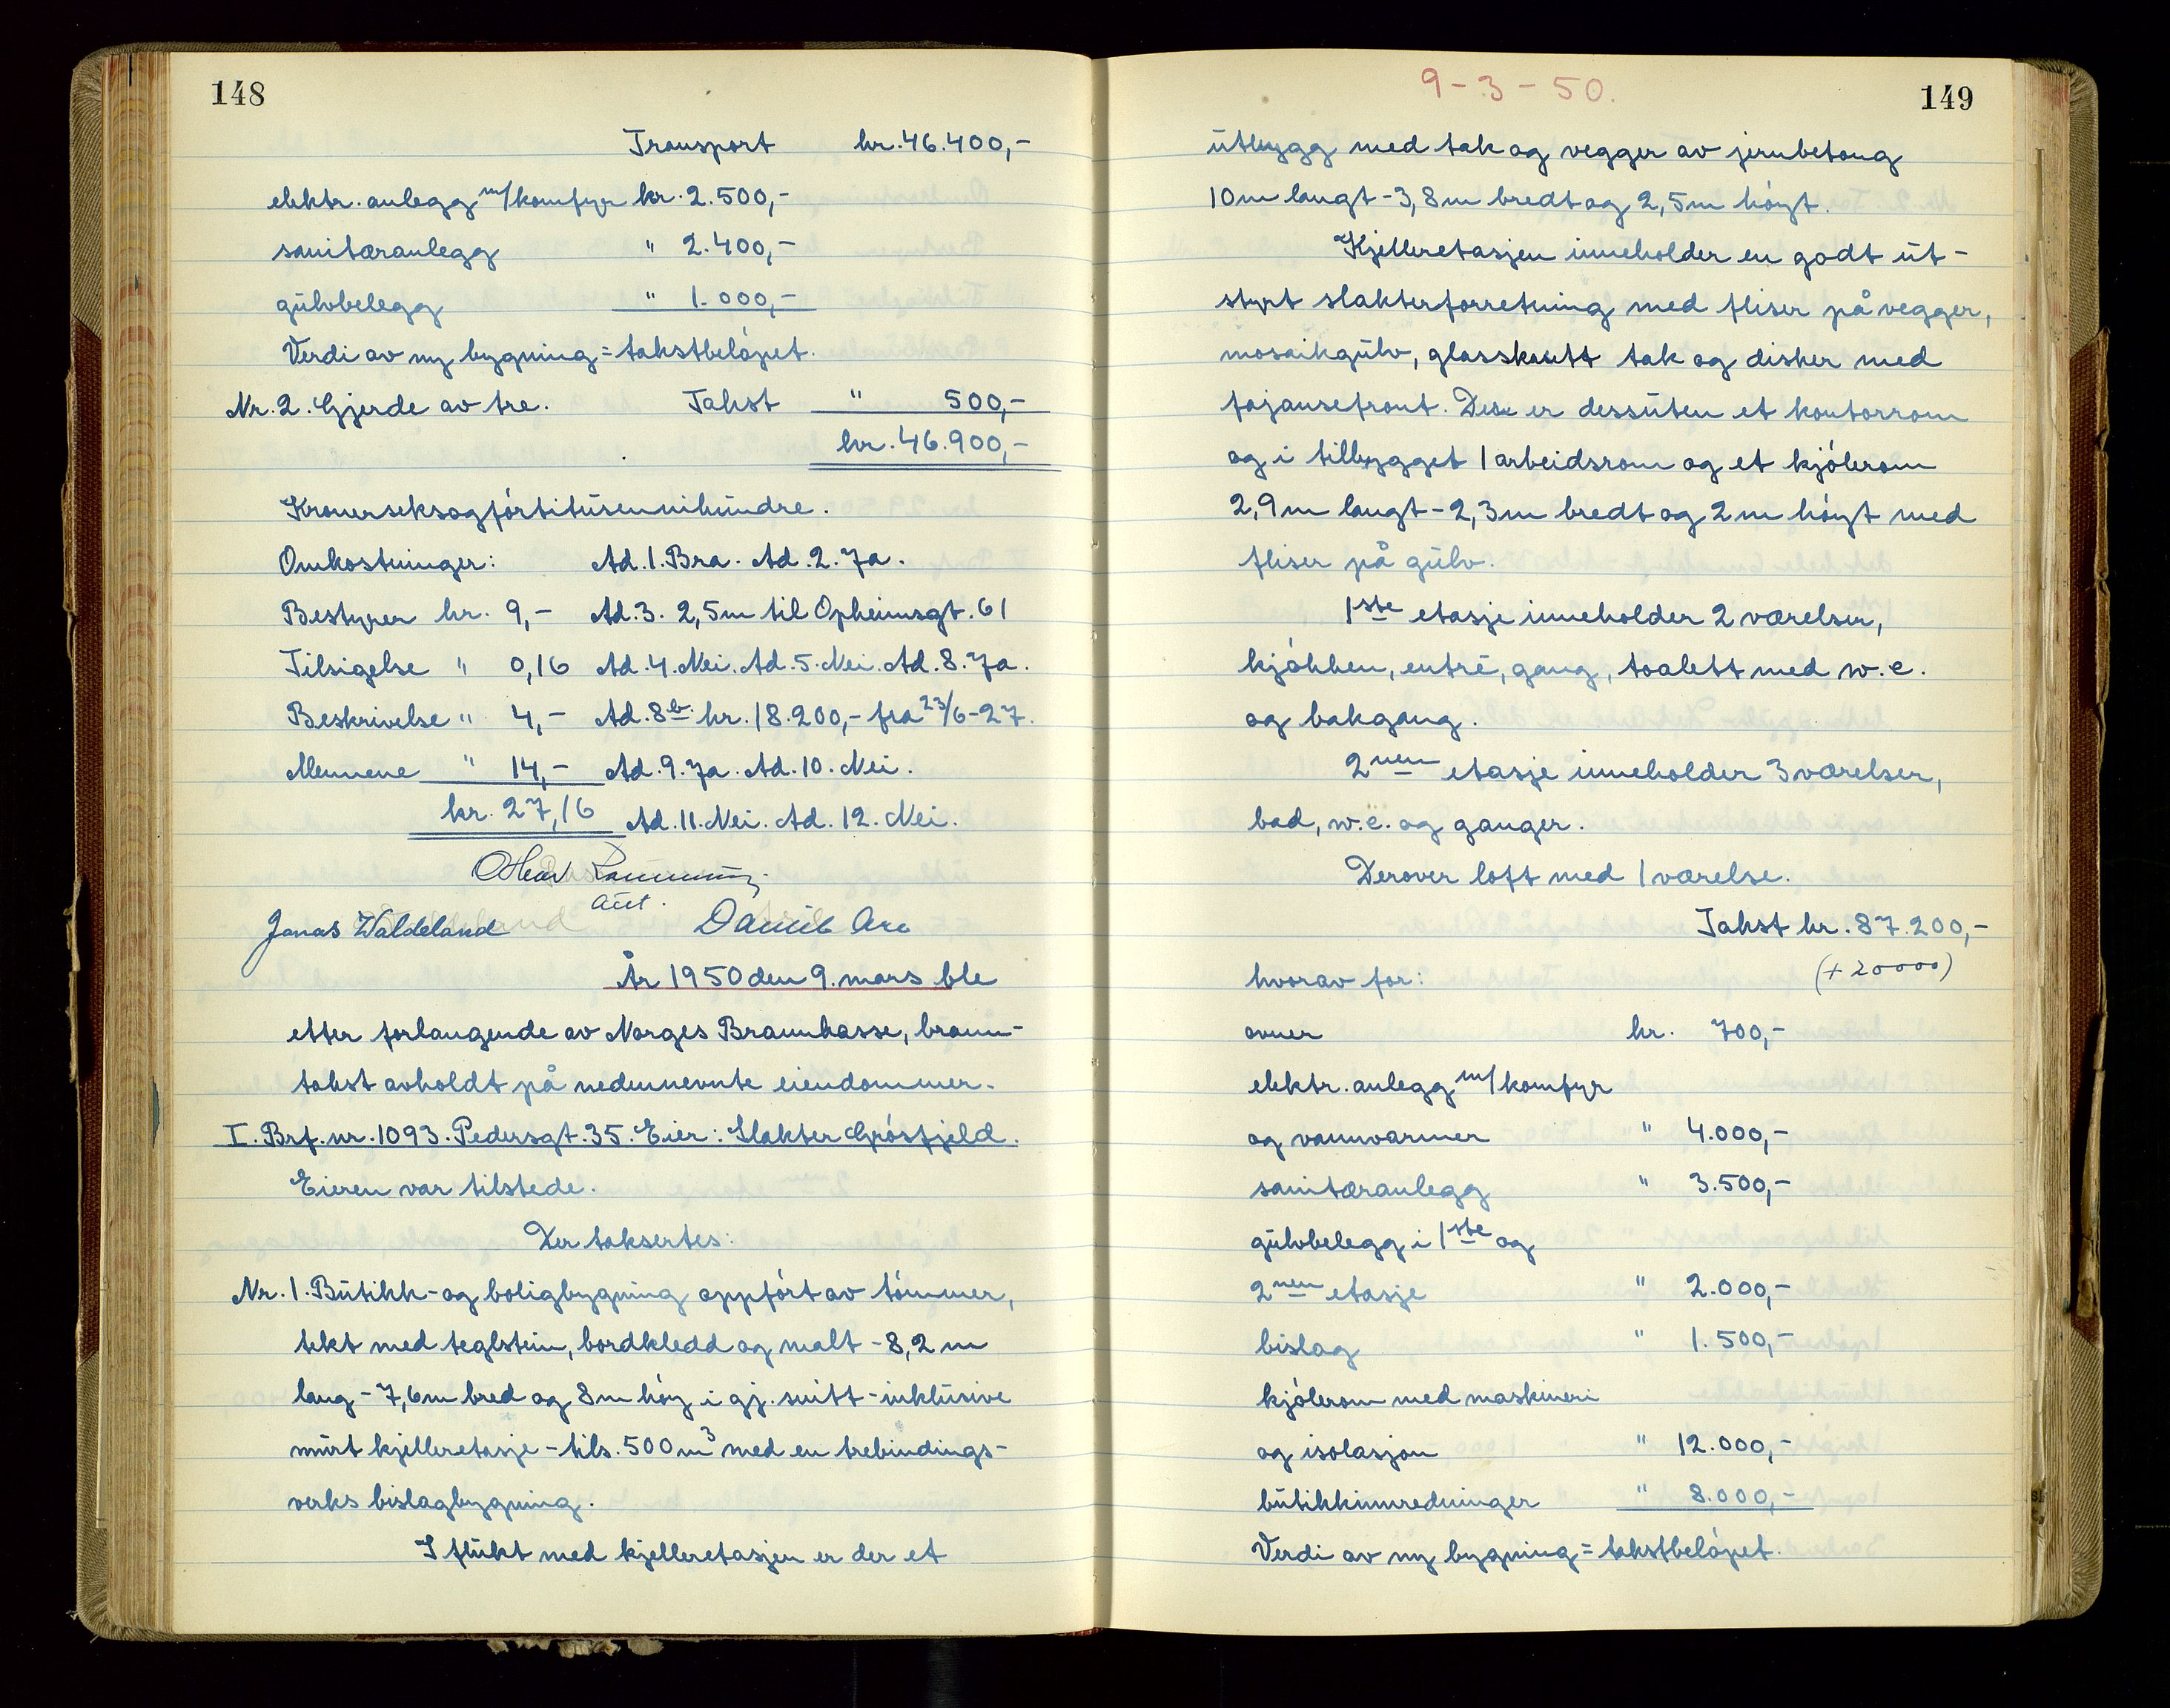 148
Transport kr. 46.400,-
elektr. anlegg m/komfyr kr. 2.500,-
sanitæranlegg " 2.400,-
gulvbelegg " 1.000,-
Verdi av ny bygning = takstbeløpet.
Nr. 2. Gjerde av tre. Takst " 500,-
kr. 46.900,-
Kronerseksogførtitusennihundre.
Omkostninger: Ad. 1. Bra. Ad. 2. Ja.
Bestyrer kr. 9,- Ad. 3. 2,5m til Opheimsgt. 61
Tilsigelse " 0,16 Ad. 4. Nei. Ad. 5. Nei. Ad. 8. Ja.
Beskrivelse " 4,- Ad. 8b. kr. 18.200,- fra 23/6-27.
Mennene " 14,- Ad. 9. Ja. Ad. 10. Nei.
kr. 27,16 Ad. 11. Nei. Ad. 12. Nei.
aut.
Jonas Waldeland Daniel
År 1950 den 9. mars ble
etter forlangende av Norges Brannkasse, brann-
takst avholdt på nedennevnte eiendommer.
I. Brf. nr. 1093. Pedersgt. 35. Eier: Slakter Grøsfjeld.
Eieren var tilstede.
Der taksertes:
Nr. 1. Butikk- og boligbygning oppført av tømmer,
tekt med teglstein, bordkledd og malt - 8,2 m
lang - 7,6m bred og 8m høy i gj. snitt - inklusive
murt kjelleretasje - tils. 500 m³ med en trebindings-
verks bislagbygning.
I flukt med kjelleretasjen er der et
9-3-50.
149
utbygg med tak og vegger av jernbetong
10m langt - 3,8m bredt og 2,5m høyt.
Kjelleretasjen inneholder en godt ut-
styrt slakterforretning med fliser på vegger,
mosaikgulv, glasskantt tak og disker med
fajansefront. Dese er dessuten et kontorrom
og i tilbygget 1 arbeidsrom og et kjølerom
2,9m langt - 2,3m bredt og 2m høyt med
fliser på gulv.
1ste etasje inneholder 2 værelser,
kjøkken, entré, gang, toalett med w.c.
og bakgang.
2nen etasje inneholder 3 værelser,
bad, w.c. og ganger.
Derover loft med 1 værelse.
Takst kr. 87.200,-
(+ 20000)
hvorav for:
ovner kr. 700,-
elektr. anlegg m/komfyr
og vannvarmer " 4.000,-
sanitæranlegg " 3.500,-
gulvbelegg i 1ste og
2nen etasje " 2.000,-
bislag " 1.500,-
kjølerom med maskineri
og isolasjon " 12.000,-
butikkinnredninger " 8.000,-
Verdi av ny bygning = takstbeløpet.